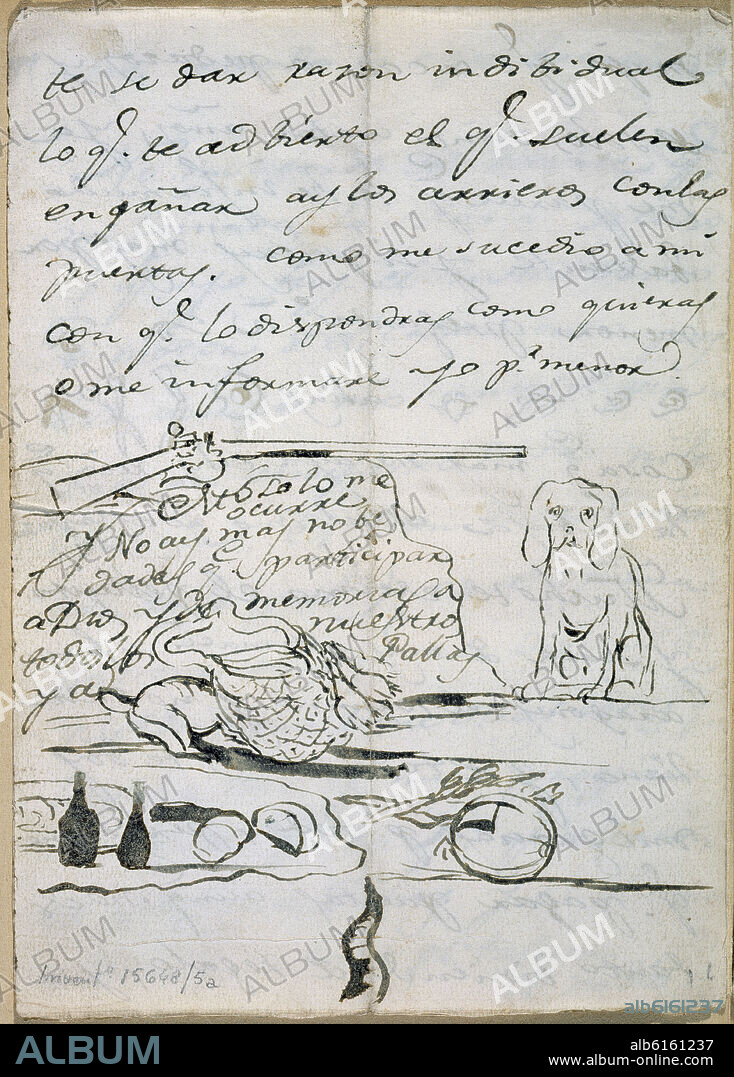 te se dar razon indibidual
lo q.e te adbierto es q.e suelen
engañar ay los arrieros con las
puertas. como me sucedio a mi
con q.e lo dispondras como quieras
o me informare yo p.r menor.
Esto solo me
ocurre
Y No ay mas nobe
dades q.e participar
a Dios y da memorias a
todos los nuestro
y a Pallas
Invent.º 15648/5a
ALBUM
alb6161237
ALBUM
alb6161237
www.album-online.com